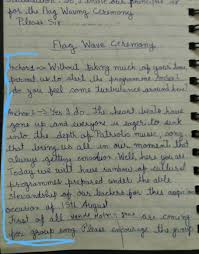 for the Flag Waving Ceremony
Please Sir
Flag Wave Ceremony
Anchor 1 → Without taking much of your time,
permit us to start the programme
do you feel some turbulence around here!
Anchor 2 → Yes I do. The heart beats have
gone up and everyone is eager to sink
into the depth of Patriotic music, song
that bring us all in our moment that
always getting emotion. Well, here you are
Today we will have rainbow of cultural
programmes prepared under the able
stewardship of our teachers for this
occasion of 15th August
First of all are coming
for group song. Please encourage the group